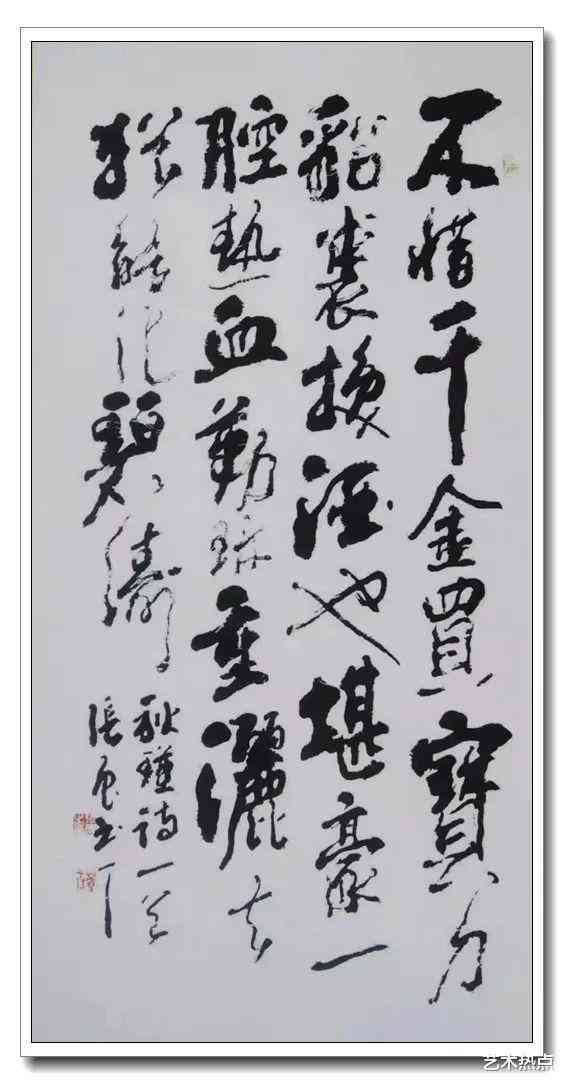 不惜千金買寶刀
貂裘換酒也堪豪一
腔熱血勤珍重灑去
猶能化碧濤
秋瑾詩一首
張
艺术热点